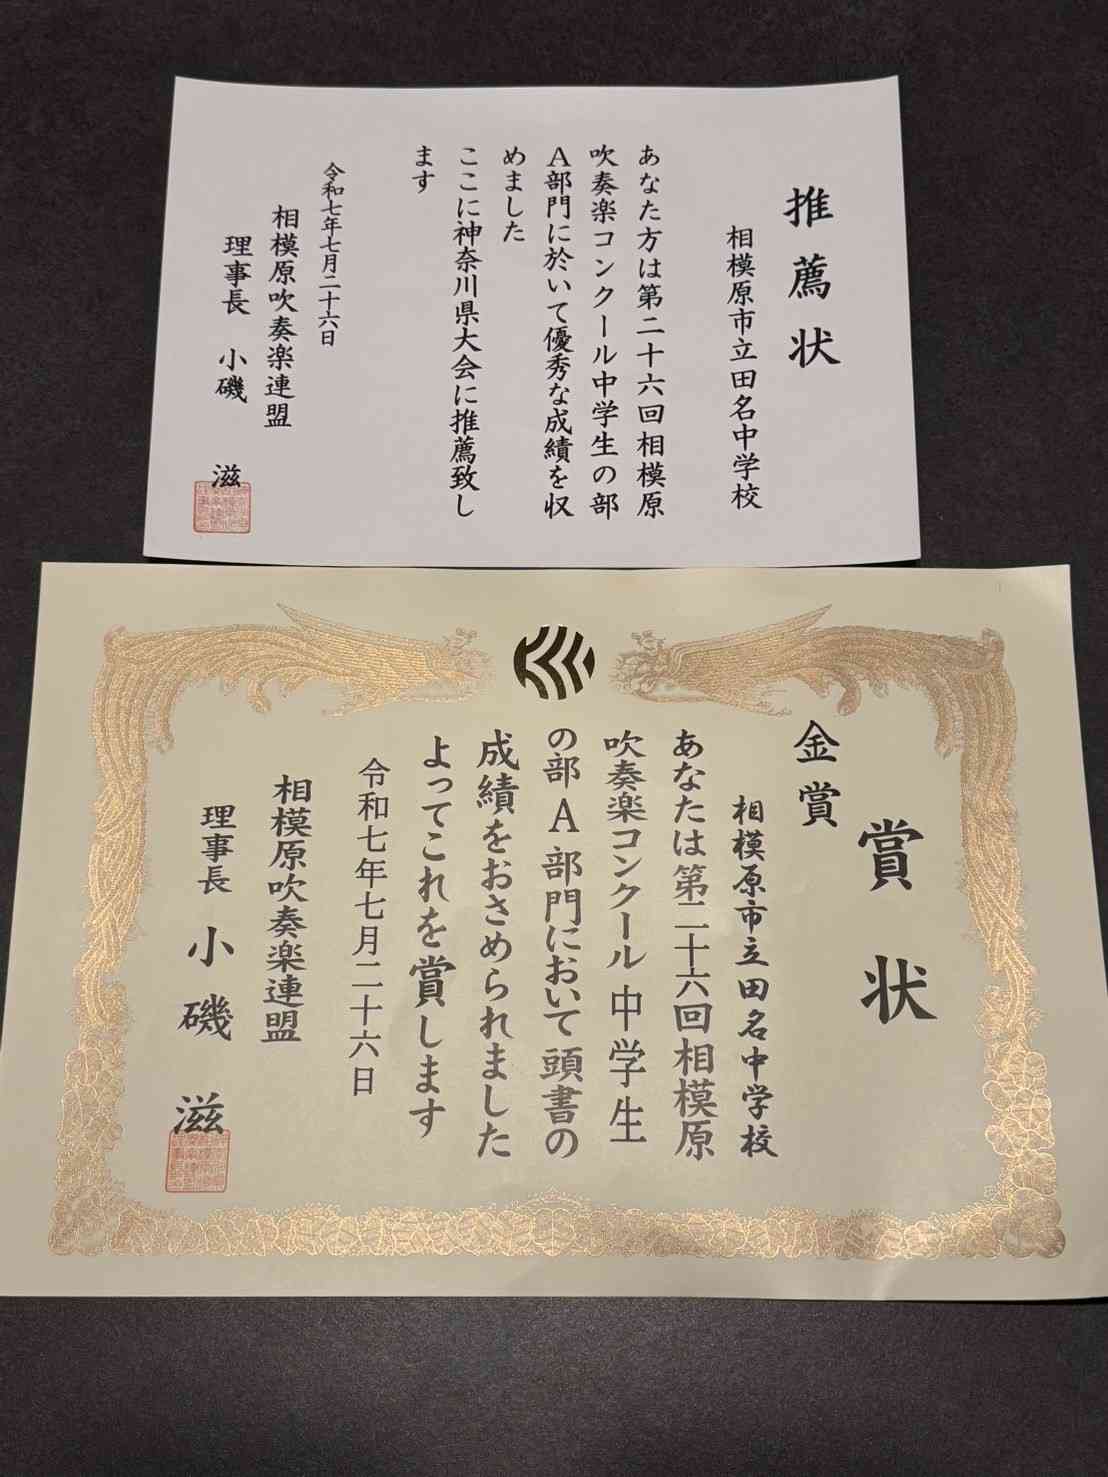 推薦状
相模原市立田名中学校
あなた方は第二十六回相模原
吹奏楽コンクール中学生の部
A部門に於いて優秀な成績を収
めました
ここに神奈川県大会に推薦致し
ます
令和七年七月二十六日
相模原吹奏楽連盟
理事長 小磯 滋
賞状
金賞
相模原市立田名中学校
あなたは第二十六回相模原
吹奏楽コンクール中学生
の部 A 部門において頭書の
成績をおさめられました
よってこれを賞します
令和七年七月二十六日
相模原吹奏楽連盟
理事長 小磯 滋